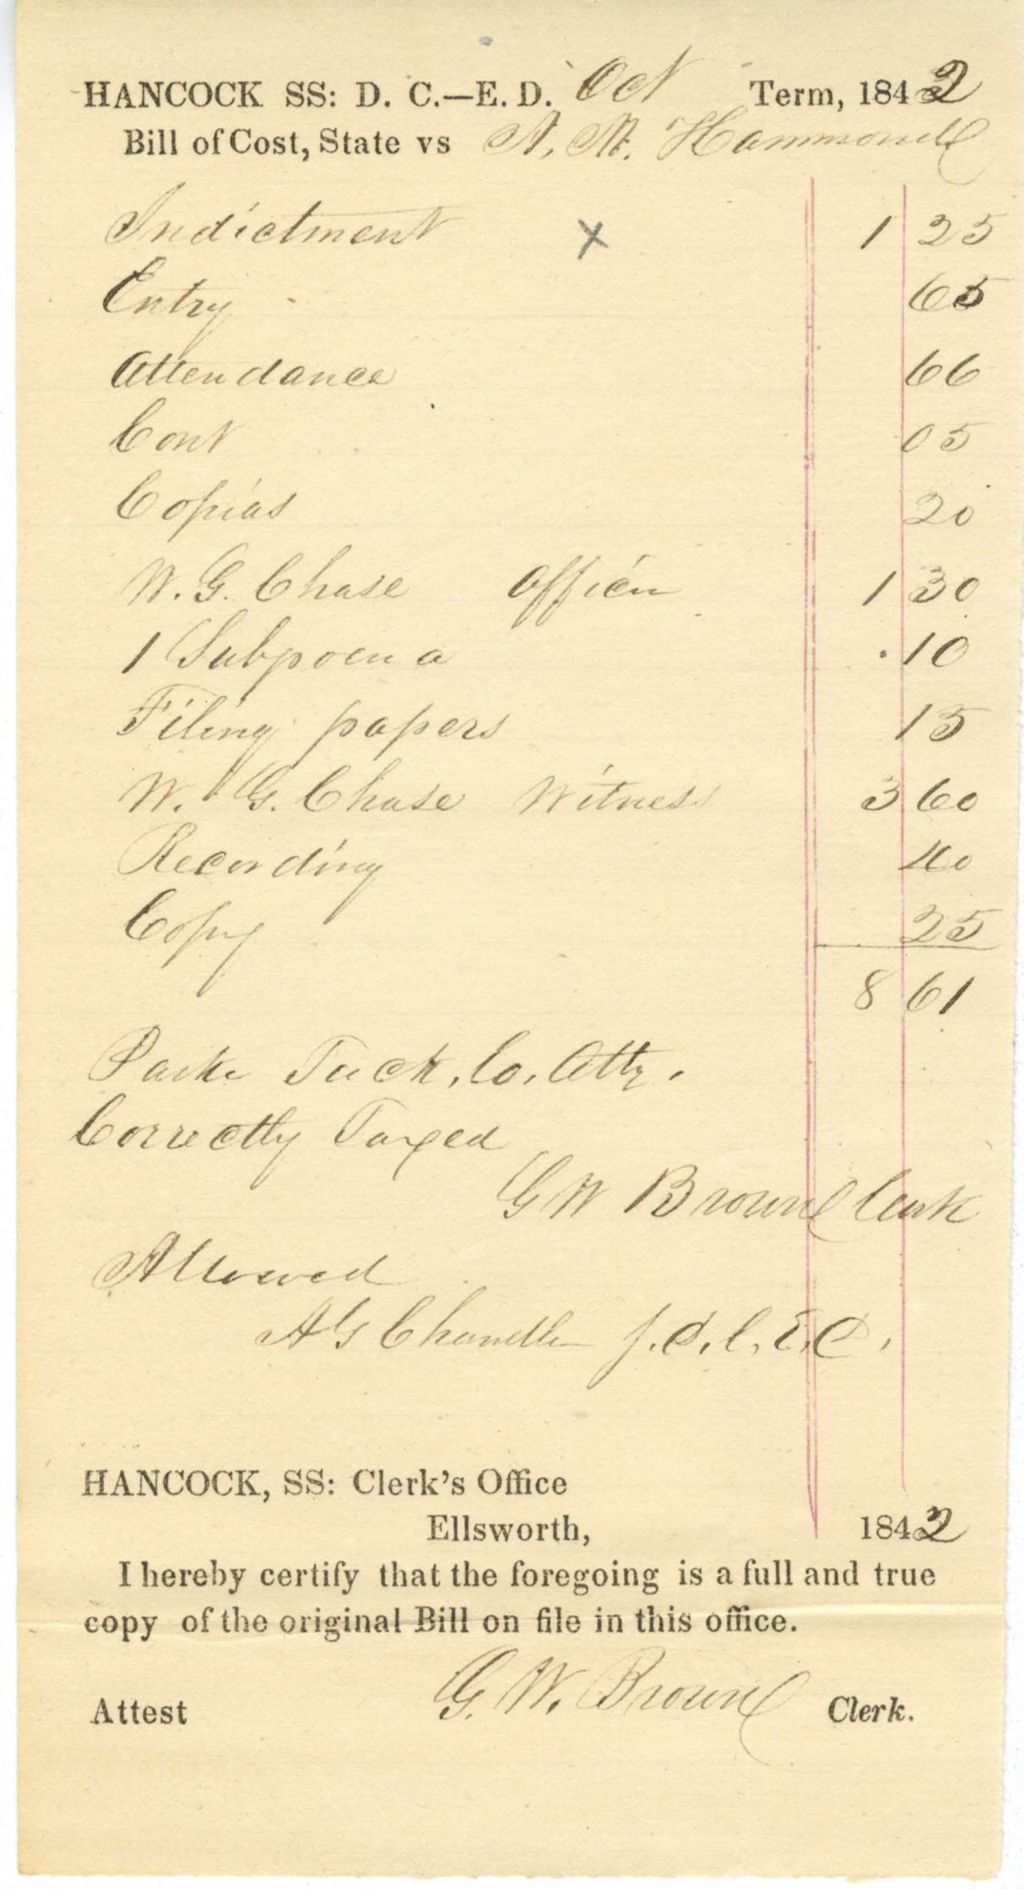 HANCOCK SS: D. C.—E. D. Oct Term, 1842
Bill of Cost, State vs A. M. Hammond
Indictment x 1 25
Entry 65
Attendance 66
Cont 05
Copias 20
W. G. Chase Officer 1 30
1 Subpoena .10
Filing papers 15
W. G. Chase Witness 3 60
Recording 40
Copy 25
8 61
Parker Tuck, Co. Atty.
Correctly Taxed
G W Brown Clerk
Allowed
A G Chandler J. D. C. E. D.
HANCOCK, SS: Clerk's Office
Ellsworth, 1842
I hereby certify that the foregoing is a full and true
copy of the original Bill on file in this office.
Attest G. W. Brown Clerk.